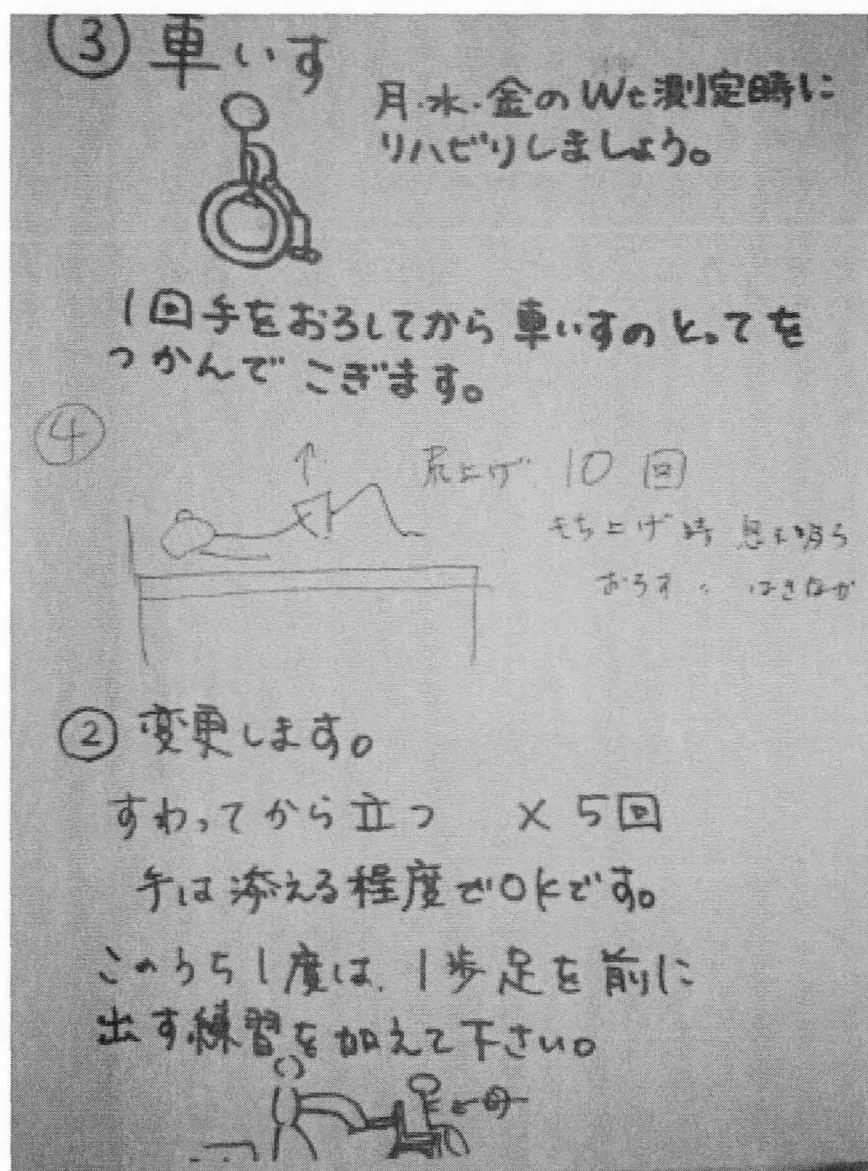 ③ 車いす
月・水・金のWt測定時に
リハビリしましょう。
1回手をおろしてから車いすのとってを
つかんで こぎます。
④
尻上げ 10回
もち上げ時 息を吸う
おろす 〃 はきながら
② 変更します。
すわってから立つ ×5回
手は添える程度でOKです。
このうち1度は、1歩足を前に
出す練習を加えて下さい。